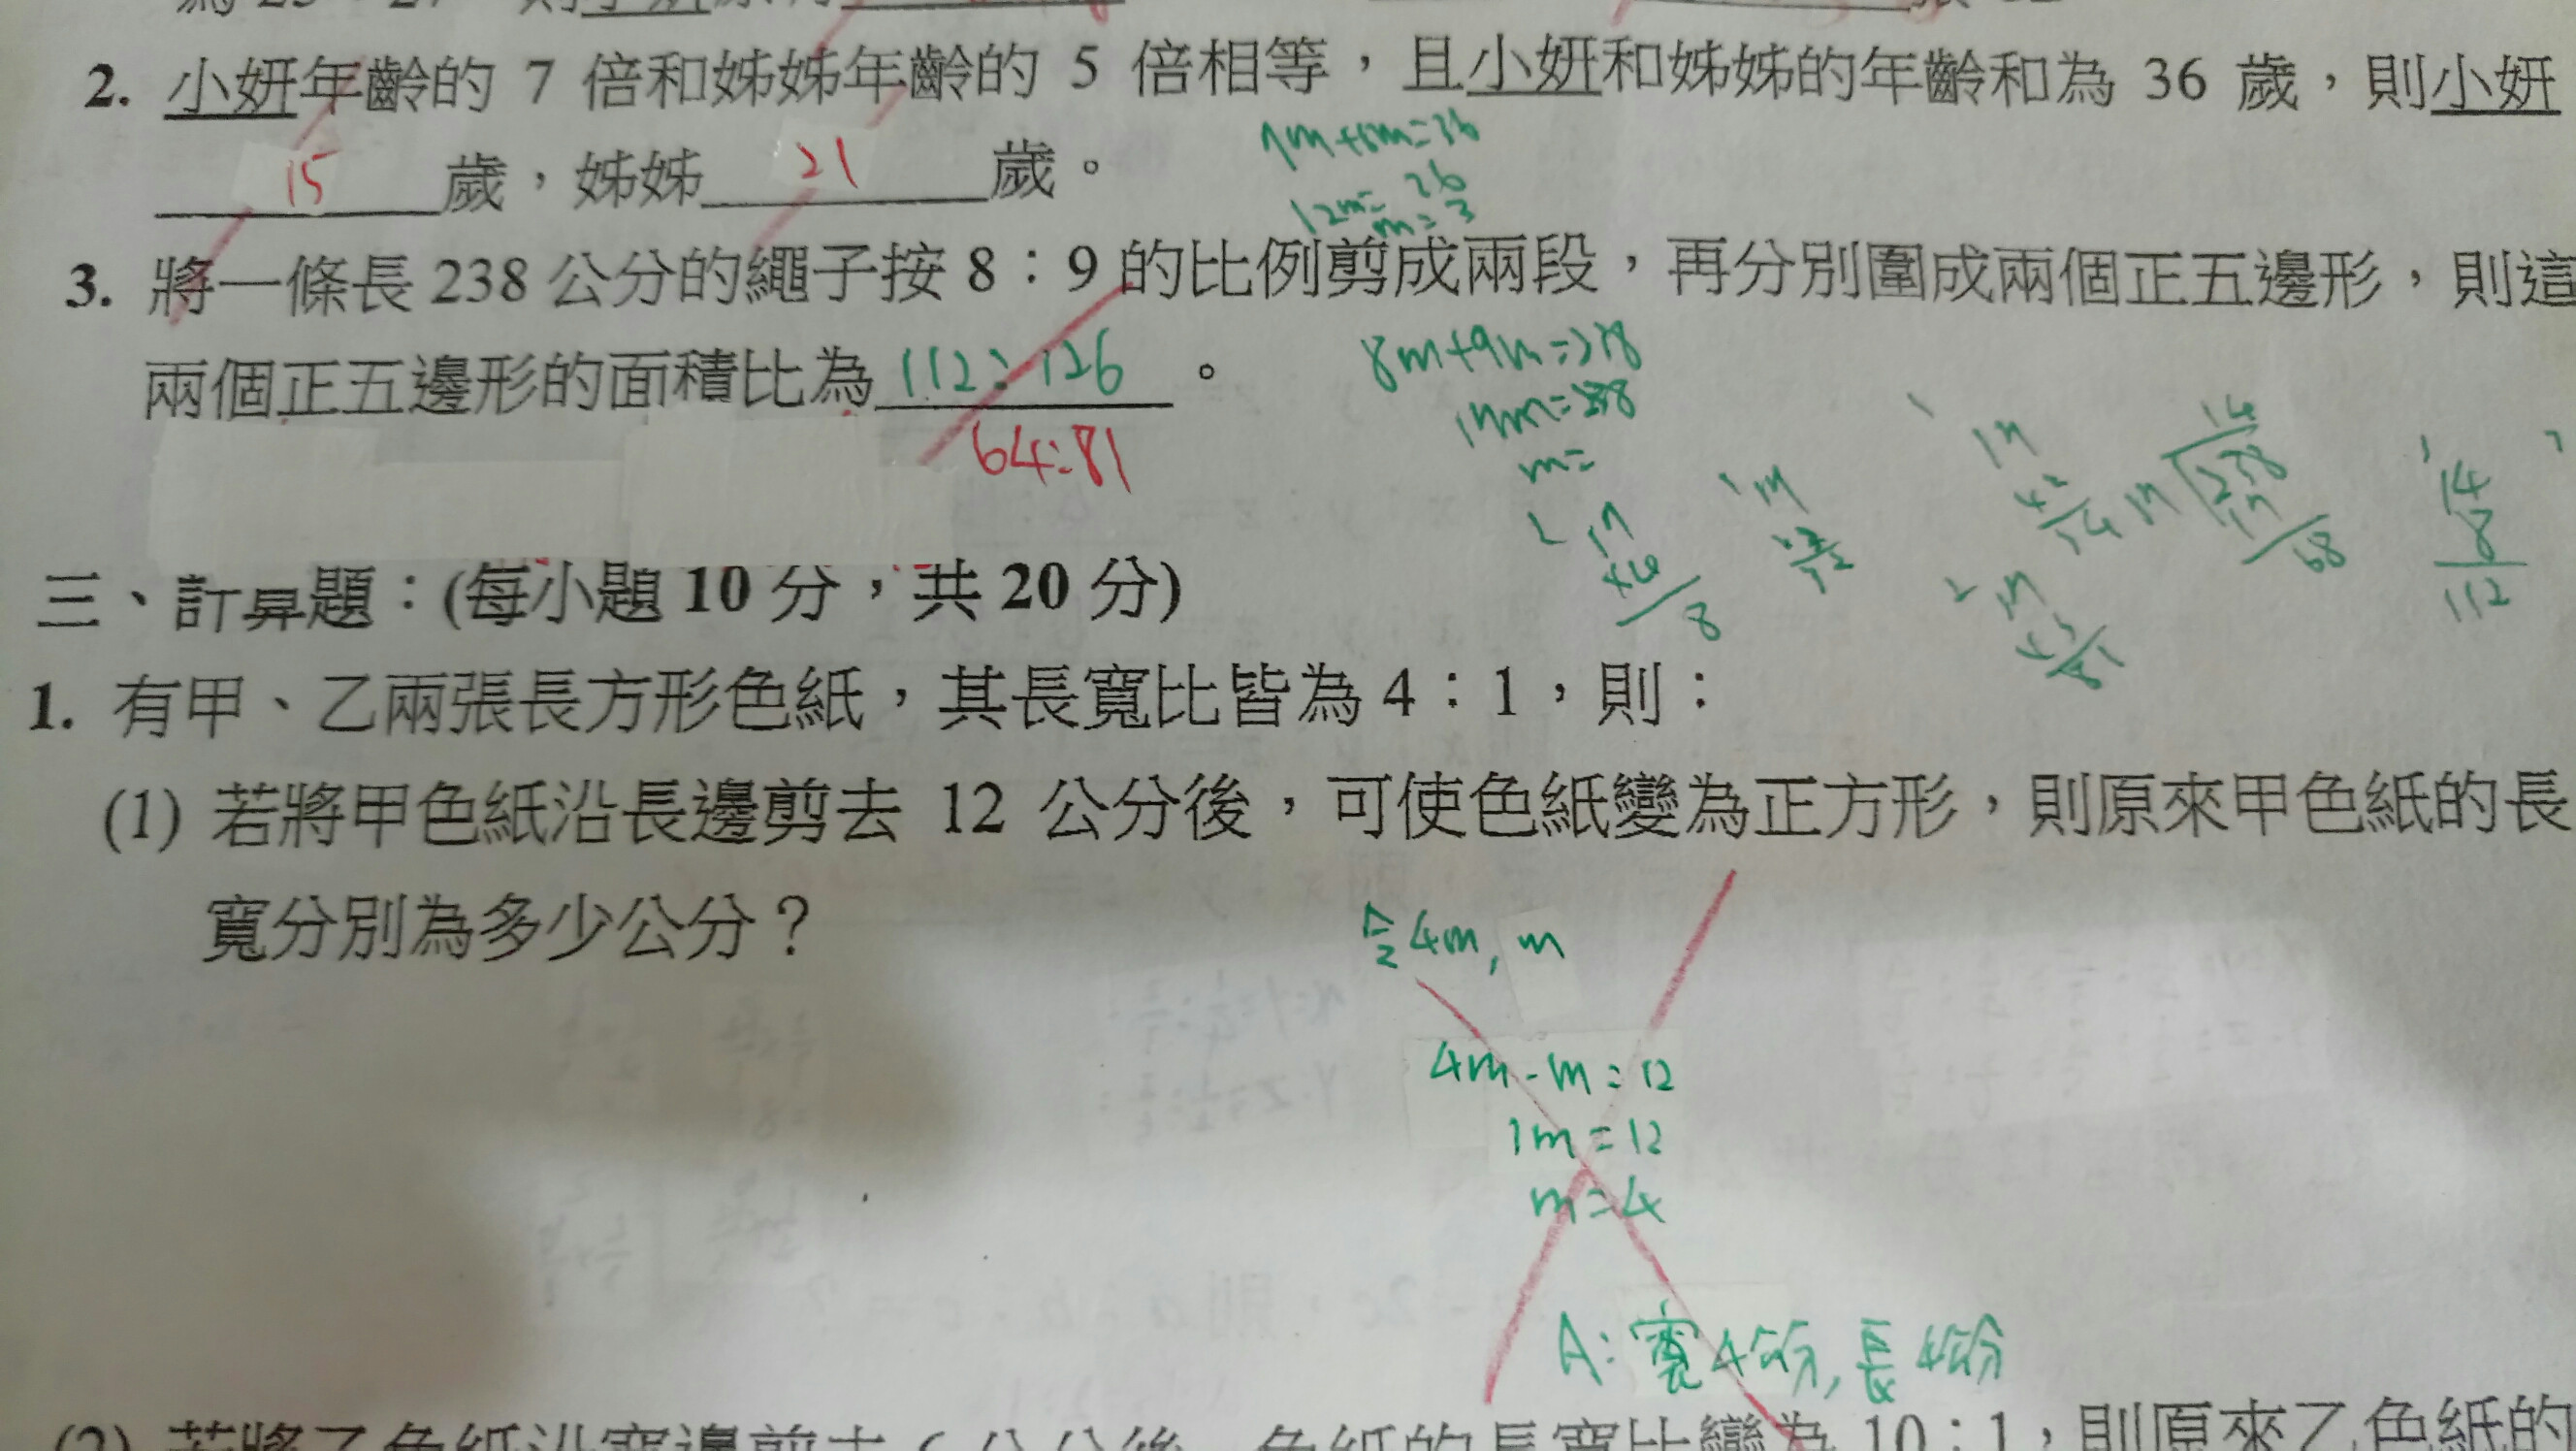 2. 小妍年齡的 7 倍和姊姊年齡的 5 倍相等，且小妍和姊姊的年齡和為 36 歲，則小妍
15 歲，姊姊 21 歲。
12m=36
m=3
3. 將一條長 238 公分的繩子按 8：9 的比例剪成兩段，再分別圍成兩個正五邊形，則這
兩個正五邊形的面積比為 112:126 。
64:81
8m+9m=238
17m=238
m=
14
238
17
68
14
8
112
三、計算題：(每小題 10 分，共 20 分)
1. 有甲、乙兩張長方形色紙，其長寬比皆為 4：1，則：
(1) 若將甲色紙沿長邊剪去 12 公分後，可使色紙變為正方形，則原來甲色紙的長
寬分別為多少公分？
令4m, m
4m-m=12
m=4
A:寬4公分,長4公分
(2) 若將乙色紙沿寬邊剪去 6 公分後，色紙的長寬比變為 10：1，則原來乙色紙的